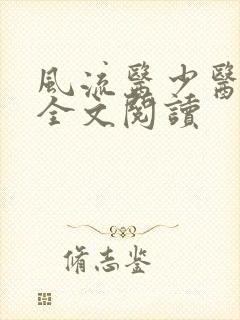 風流醫少醫
全文閱讀
脩志鉴